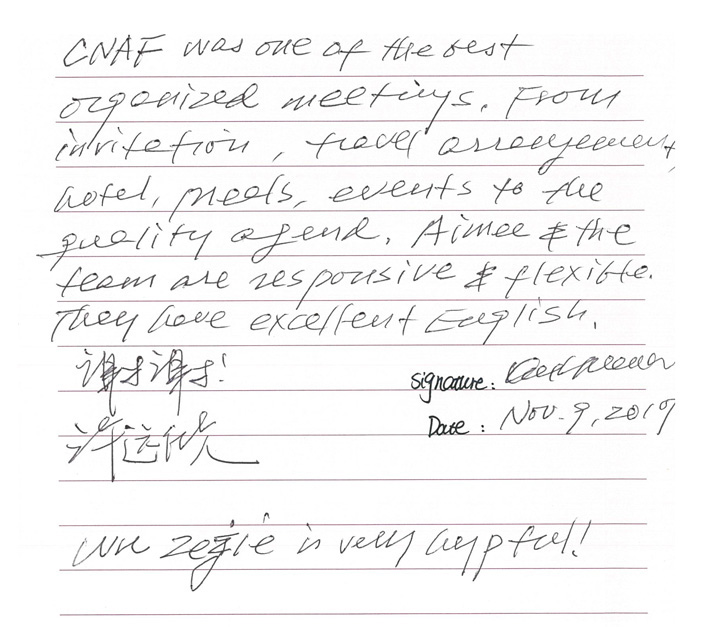 CNAF was one of the best
organized meetings. From
invitation, travel arrangement,
hotel, meals, events to the
quality agend. Aimee & the
team are responsive & flexible.
They have excellent English.
谢谢谢谢!
Signature:
Date: Nov. 9, 2019
许送
Wu Zejie is very helpful!